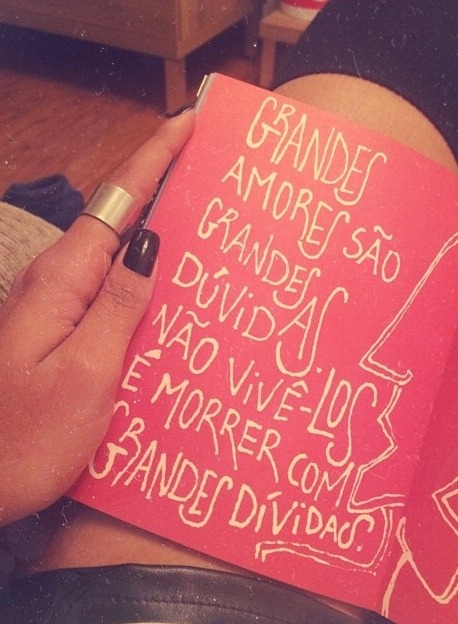 GRANDES
AMORES SÃO
GRANDES
DÚVIDAS.
NÃO VIVÊ-LOS
É MORRER COM
GRANDES DÍVIDAS.